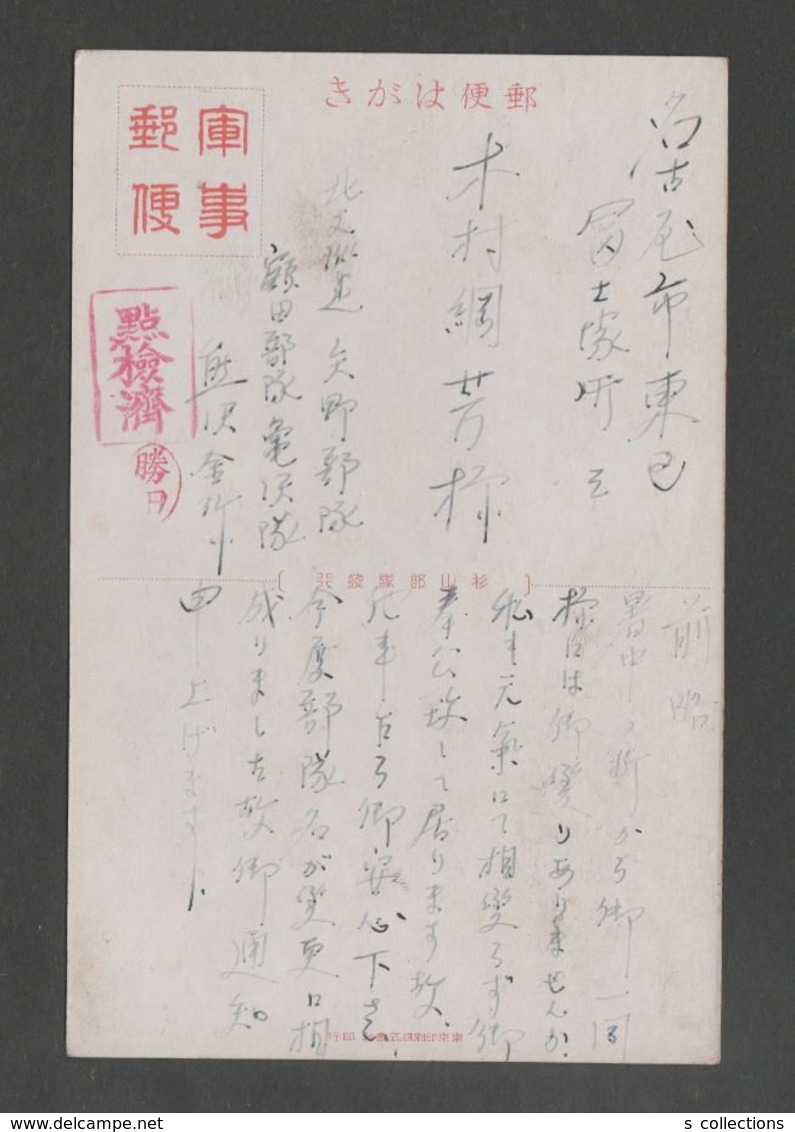 郵便はがき
軍事
郵便
點檢濟
勝日
名古屋市東区
富士塚町三
木村綱芳様
北支派遣 矢野部隊
額田部隊亀沢隊
熊沢金作
杉山部隊發行
前略
暑中の折から御一同
様には御変りありませんか
私も元氣にて相変らず御
奉公致して居ります故
御安心下さい
今度部隊名が変更に相
成りました故御通知
申上げます
東京印刷株式會社印行
s collections